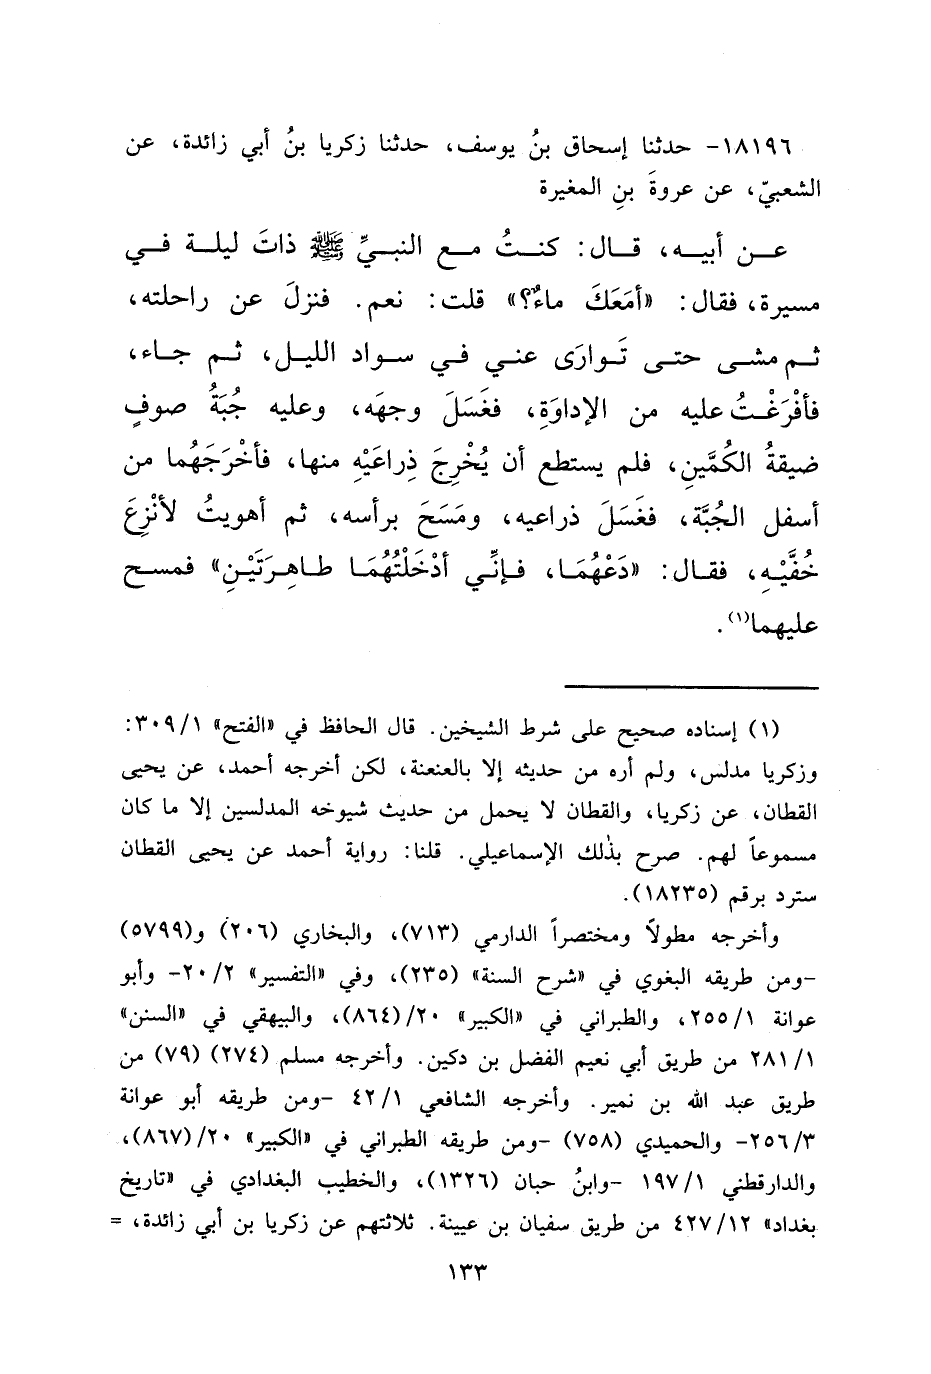 ١٨١٩٦- حدثنا إسحاق بنُ يوسف، حدثنا زكريا بنُ أبي زائدة، عن
الشعبيّ، عن عروةَ بنِ المغيرة
عن أبيه، قال: كنتُ مع النبيِّ ﷺ ذاتَ ليلة في
مسيرة، فقال: «أمَعَكَ ماءٌ؟» قلت: نعم. فنزلَ عن راحلته،
ثم مشى حتى تَوارَى عني في سواد الليل، ثم جاء،
فأفْرَغْتُ عليه من الإداوَةِ، فغَسَلَ وجهَه، وعليه جُبَةُ صوفٍ
ضيقةُ الكُمَّينِ، فلم يستطع أن يُخْرِجَ ذِراعَيْهِ منها، فأخْرَجَهُما من
أسفل الجُبَّة، فغَسَلَ ذراعيه، ومَسَحَ برأسه، ثم أهويتُ لأنْزِعَ
خُفَّيْهِ، فقال: «دَعْهُمَا، فإنِّي أدْخَلْتُهُمَا طاهِرَتَيْنِ» فمسح
عليهما(١).
(١) إسناده صحيح على شرط الشيخين. قال الحافظ في «الفتح» ٣٠٩/١:
وزكريا مدلس، ولم أره من حديثه إلا بالعنعنة، لكن أخرجه أحمد، عن يحيى
القطان، عن زكريا، والقطان لا يحمل من حديث شيوخه المدلسين إلا ما كان
مسموعاً لهم. صرح بذٰلك الإسماعيلي. قلنا: رواية أحمد عن يحيى القطان
سترد برقم (١٨٢٣٥).
وأخرجه مطولاً ومختصراً الدارمي (٧١٣)، والبخاري (٢٠٦) و(٥٧٩٩)
-ومن طريقه البغوي في «شرح السنة» (٢٣٥)، وفي «التفسير» ٢٠/٢- وأبو
عوانة ٢٥٥/١، والطبراني في «الكبير» ٢٠/(٨٦٤)، والبيهقي في «السنن»
٢٨١/١ من طريق أبي نعيم الفضل بن دكين. وأخرجه مسلم (٢٧٤) (٧٩) من
طريق عبد الله بن نمير. وأخرجه الشافعي ٤٢/١ -ومن طريقه أبو عوانة
٢٥٦/٣- والحميدي (٧٥٨) -ومن طريقه الطبراني في «الكبير» ٢٠/(٨٦٧)،
والدارقطني ١٩٧/١ -وابنُ حبان (١٣٢٦)، والخطيب البغدادي في «تاريخ
بغداد» ٤٢٧/١٢ من طريق سفيان بن عيينة. ثلاثتهم عن زكريا بن أبي زائدة، =
١٣٣